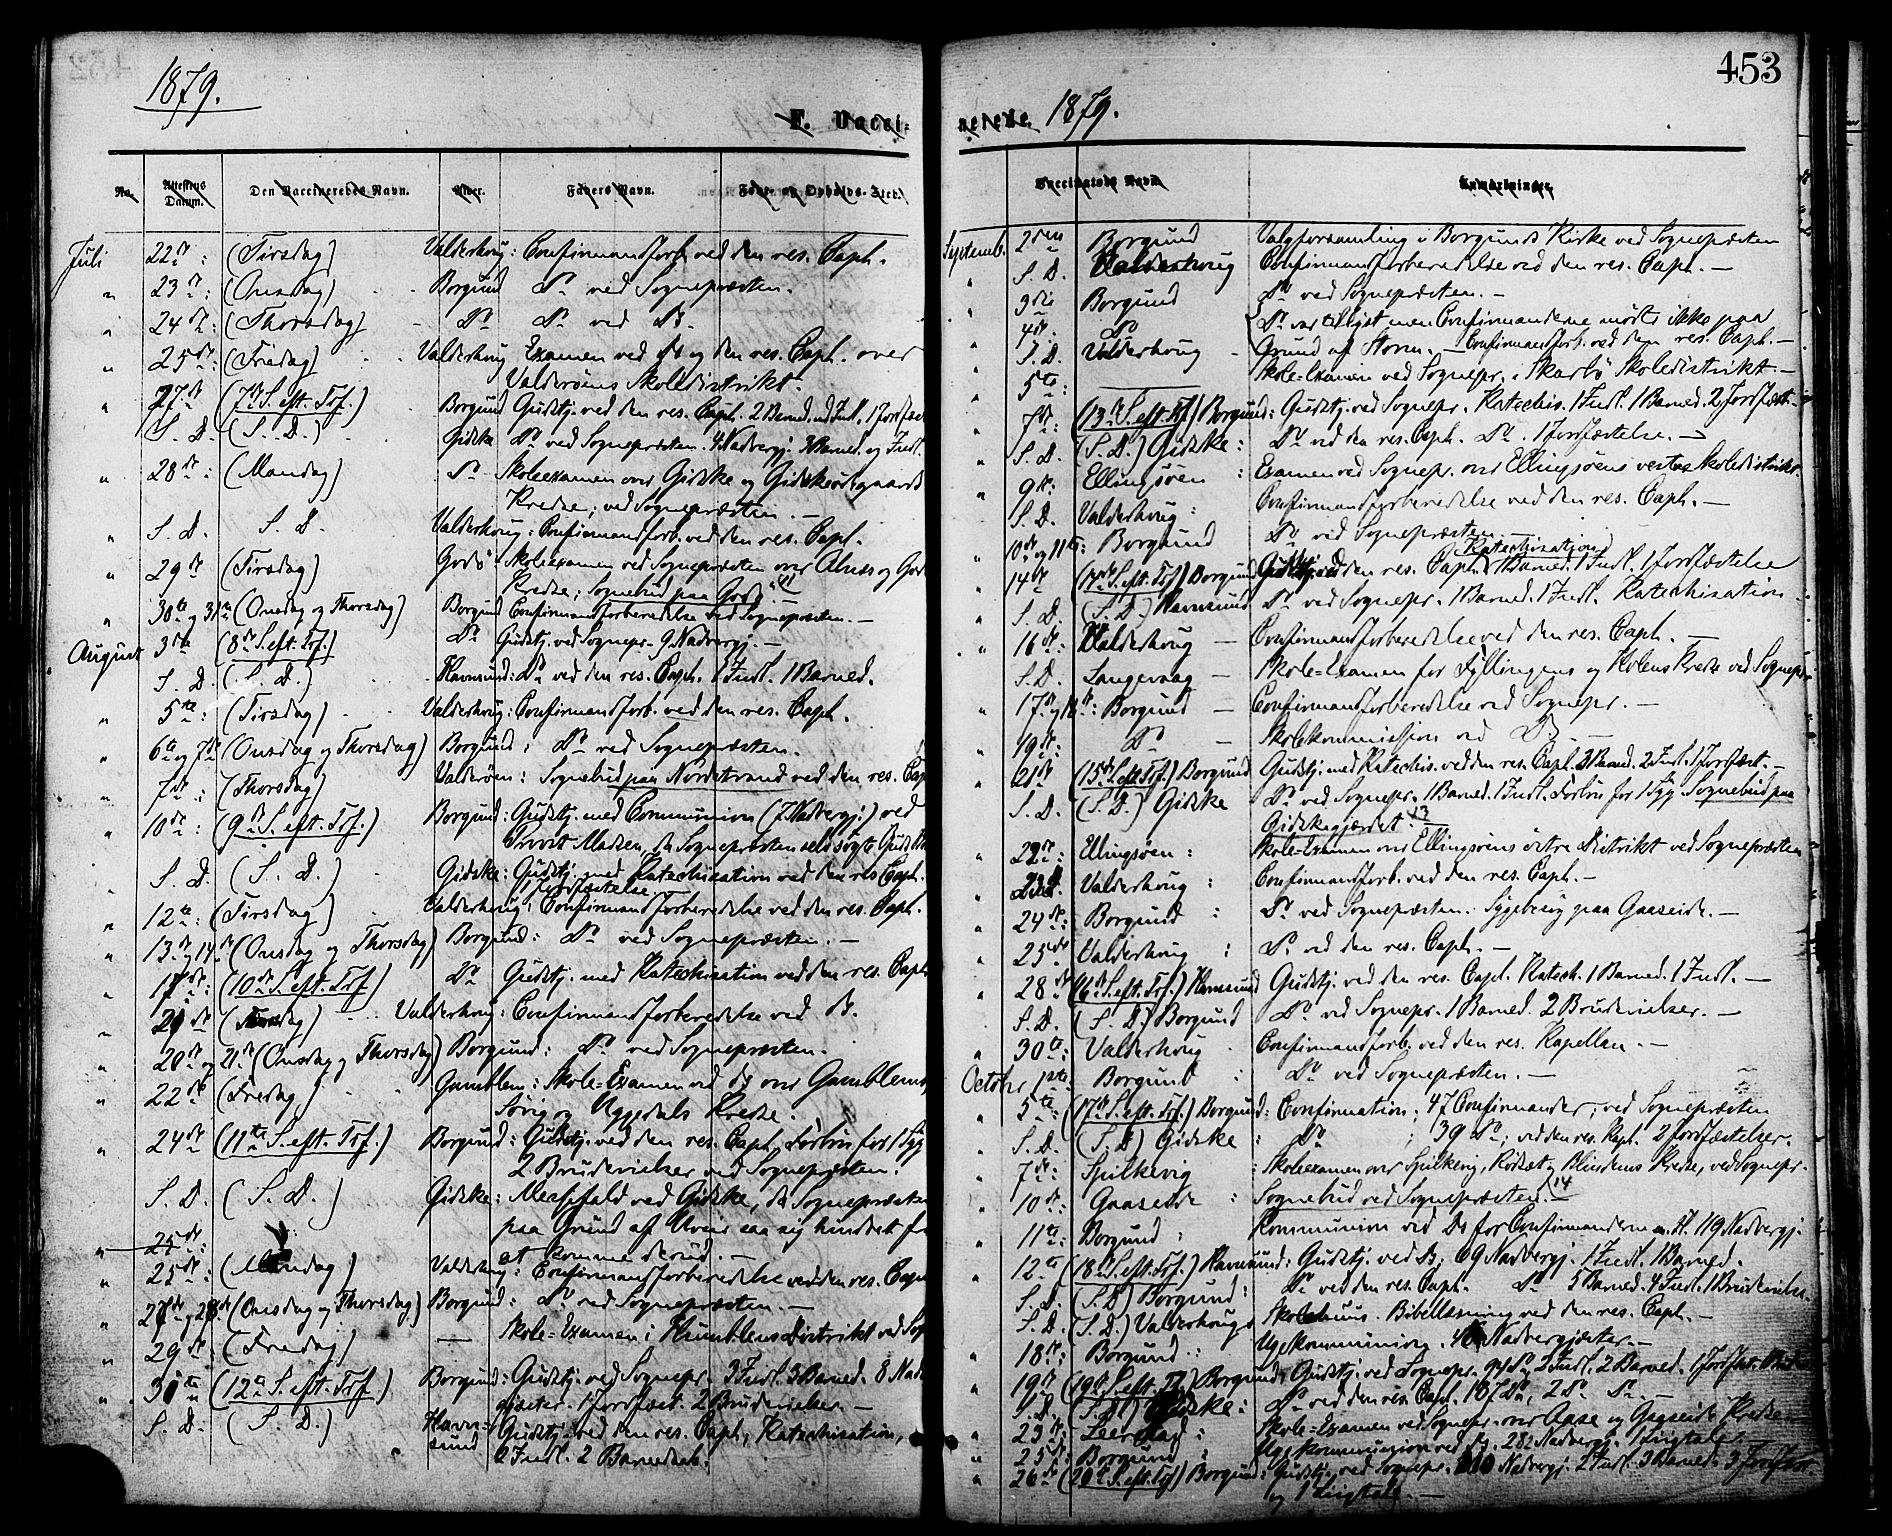 1879.
F. Vacci-
No. Attestens Datum. Den Vaccineredes Navn. Alder. Faders Navn. Føde- og Opholds-Sted.
Juli 22de: (Tirsdag) Valderhoug: Confirmandforb. ved den res. Caph.
" 23de: (Onsdag) Borgund Do ved Sognepræsten.
" 24de: (Thorsdag) Do Do ved Ds.
" 25de: (Fredag) Valderhoug Examen ved Ds og den res. Caph. over
Valderøens Skoledistrikt.
" 27de (7de S. eft. Trf.) Borgund Gudstj. ved den res. Caph. 2 Barned. 1 Forfæst
S. D. (S. D.) Gidske Do ved Sognepræsten. 4 Nadvergj. 3 Barned. og Indl.
" 28de: (Mandag) Do Skoleexamen over Gidske og Gidskeødegaards
Kredse; ved Sognepræsten. —
" S. D. S. D. Valderhoug: Confirmandforb. ved den res. Caph.
" 29de (Tirsdag) Godø Skoleexamen ved Sognepræsten over Alnes og Godø
Kredse; Sognebud paa Godø. 11
" 30te og 31te (Onsdag og Thorsdag) Borgund Confirmandforberedelse ved Sognepræsten. —
August 3die (8de S. eft. Trf.) Do Gudstj. ved Sognepr. 9 Nadvergj. —
S. D. (S. D.) Havnsund: Do ved den res. Caph. 1 Indl. 1 Barned.
" 5te: (Tirsdag) Valderhoug: Confirmandforb. ved den res. Caph.
" 6te og 7de (Onsdag og Thorsdag) Borgund: Do ved Sognepræsten.
" 7de: (Thorsdag) Valderøen: Sognebud paa Nordstrand ved den res. Cap
" 10de: (9de S. eft. Trf.) Borgund: Gudstj. med Communion (7 Nadvergj.) ved
Provst Madsen, da Sognepræsten selv søgte Guds
" S. D. (S. D.) Gidske: Gudstj. med Katechisation ved den res. Caph.
1 Forfæstelse
" 12te: (Tirsdag) Valderhoug: Confirmandforberedelse ved den res. Caph.
" 13de og 14de (Onsdag og Thorsdag) Borgund: Do ved Sognepræsten. —
" 17de: (10de S. eft. Trf) Do Gudstj. med Katechisation ved den res. Caph
" de (dag) Valderhoug: Confirmandforberedelse ved Ds.
" 20de og 21de (Onsdag og Thorsdag) Borgund: Do ved Sognepræsten.
" 22de (Fredag) Gamblem: Skole-Examen ved Ds over Gamblems,
Søvig og Uggedals Kredse.
" 24de (11te S. eft. Trf.) Borgund: Gudstj. ved den res. Caph, Forbøn for 1 Syg
2 Brudevielser ved Sognepræsten.
S. D. (S. D.) Gidske: Messefald ved Gidske, da Sognepræsten
paa Grund af Uveir saa sig hindret fra
" 25de: at komme derud. —
" 25de: (Mandag) Valderhoug: Confirmandforberedelse ved den res. Caph
" 27de og 28de (Onsdag og Thorsdag) Borgund: Do ved Sognepræsten. —
" 29de (Fredag) — Skole-Examen i Humblens Distrikt ved Sog
" 31te (12te S. eft. Trf.) Borgund: Gudstj. ved Sognepr. 3 Indl. 3 Barned. 8 Nad
gjester. 1 Forfæst. 2 Brudevielser. —
S. D. (S. D.) Havn-
sund Gudstj. ved den res. Caph, Katechisation,
2 Indl. 2 Barnedaab.
453
nerede. 1879.
Vaccinatørs Navn Anmærkninger.
Septemb. 2den Borgund Valgforsamling i Borgunds Kirke ved Sognepræsten
" S. D. Valderhoug Confirmandforberedelse ved den res. Caph. —
" 3die Borgund Do ved Sognepræsten. —
" 4de Do Do var tillyst men Confirmanderne mødte ikke paa
" S. D. Valderhoug Grund af Storm. — Confirmandforb. ved den res. Caph. —
" 5te: Skole-Examen ved Sognepr. i Skarbø Skoledistrikt —
" 7de: (13de S. eft. Trf.) Borgund: Gudstj. ved Sognepr. Katechis. 1 Indl. 1 Barned. 2 Forfæst.
" S. D. (S. D.) Gidske: Do ved den res. Caph. Do. 1 Forfæstelse. —
" 9de: Ellingsøen: Examen ved Sognepr. over Ellingsøens vestre Skoledistrikt.
" S. D. Valderhoug: Confirmandforberedelse ved den res. Caph. —
" 10de og 11te: Borgund Do ved Sognepræsten —
" 14de (14de S. eft. Trf) Borgund Gudstj. ved den res. Caph. Katechisation 1 Barned. 1 Indl. 1 Forfæstelse
" S. D. (S. D.) Havnsund Do ved Sognepr. 1 Barned. 1 Indl. Katechisation
" 16de: Valderhoug — Confirmandforberedelse ved den res. Caph. —
S. D. Langevaag — Skole-Examen for Fyllingens og Molvens Kredse ved Sognepr.
" 17de og 18de: Borgund — Confirmandforberedelse ved Sognepr. —
" 19de: Do — Skolekommission ved Ds. —
" 21de (15de S. eft. Trf.) Borgund Gudstj. med Katechis. ved den res. Caph. 3 Barned. 2 Indl. 1 Forfæst. —
" S. D. (S. D.) Gidske Do ved Sognepr. 1 Barned. 1 Indl. Forbøn for 1 Syg. Sognebud paa
Gidskegjerdet. 13
" 22de: Ellingsøen: Skole-Examen over Ellingsøens østre Distrikt ved Sognepræsten
" 23de. Valderhoug: Confirmandforb. ved den res. Caph. —
" 24de: Borgund: Do ved Sognepræsten. Sygebesøg paa Gaaseide. —
" 25de Valderhoug: Do ved den res. Caph. —
" 28de (16de S. eft. Trf.) Havnsund Gudstj. ved den res. Caph. Katech. 1 Barned. 1 Indl. —
S. D. (S. D.) Borgund Do ved Sognepr. 1 Barned. 2 Brudevielser. —
" 30te: Valderhoug Confirmandforb. ved den res. Kapellan. —
October 1ste: Borgund: Do ved Sognepræsten. —
" 5te (17de S. eft. Trf.) Borgund: Confirmation; 47 Confirmander; ved Sognepræsten
" S. D. (S. D) Gidske: Do; 39 Do; ved den res. Kaph. 2 Forfæstelser.
" 7de: Spilkevig: Skoleexamen over Spilkevig, Rødsæt og Blindems Kredse, ved Sognepr.
" 10de: Gaaseide: Sognebud ved Sognepræsten. 14
" 11te: Borgund: Kommunion ved Ds for Confirmanderne m. fl. 119 Nadvergj.
" 12te (18de S. eft. Trf.) Havnsund: Gudstj. ved Ds; 69 Nadvergj. 1 Indl. 1 Barned.
" S. D. (S. D) Borgund: Do ved den res. Caph. Do 5 Barned. 4 Indl. 1 Brudevielse.
" S. D. (S. D.) Valderhougs Skolehuus. Bibellæsning ved den res. Caph. —
" 18de: Borgund: Ugekommunion. Nadvergjæster. —
" 19de (19de S. eft. Trf.) Borgund: Gudstj. ved Sognepr. 94 Do 2 Indl. 2 Barned. 1 Forfæst.
" S. D. (S. D.) Gidske: Do ved den res. Caph. 187 Do, 2 Do Do. —
" 23de: Leerstad: Skole-Examen ved Sognepr. over Aase og Gaaseide Kredse —
" 25de: Borgund: Ugekommunion ved Ds. 282 Nadvergj. 1 Ligtale. —
" 26de (20de S. eft. Trf) Borgund: Gudstj. ved Sognepr. 210 Nadvergj. 2 Indl. 3 Barned. 3 Forfæst.
og 1 Ligtale. —